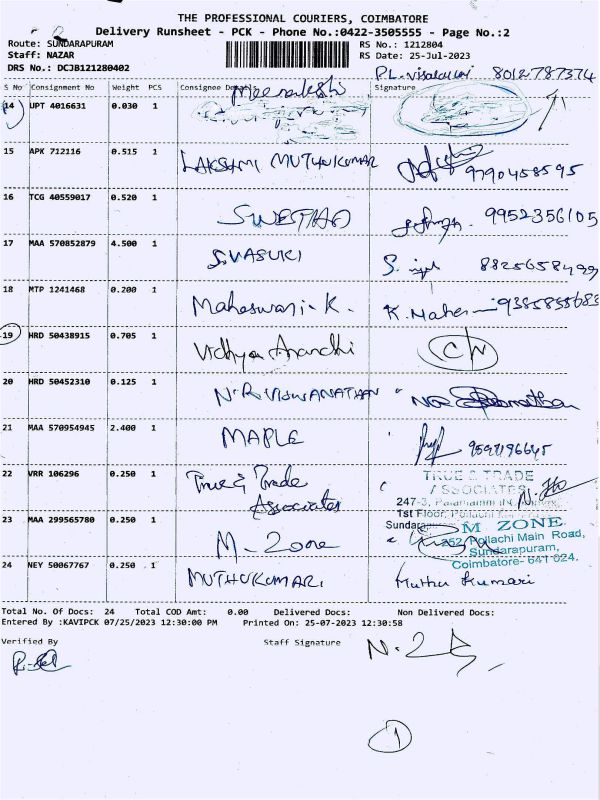 THE PROFESSIONAL COURIERS, COIMBATORE
Delivery Runsheet - PCK - Phone No.:0422-3505555 - Page No.:2
Route: SUNDARAPURAM
RS No.: 1212804
Staff: NAZAR
RS Date: 25-Jul-2023
DRS No.: DCJB121280402
8012787374
S No Consignment No Weight PCS Consignee Signature
Meenakshi
14 UPT 4016631 0.030 1
15 APK 712116 0.515 1 LAKSHMI MUTHUKUMAR 9790458595
16 TCG 40559017 0.520 1 9952356105
17 MAA 570852879 4.500 1 S.VASUKI S. 8825658499
18 MTP 1241468 0.200 1 Maheswari-K. K. Mahes
19 HRD 50438915 0.705 1 Vidhya CW
20 HRD 50452310 0.125 1 N.R.VISWANATHAN
21 MAA 570954945 2.400 1 MAPLE
22 VRR 106296 0.250 1 True & Trade
Associates
TRUE & TRADE
ASSOCIATES
247-3,
1st Floor, Pollachi
23 MAA 299565780 0.250 1 M-Zone
M ZONE
Pollachi Main Road,
Sundarapuram,
Coimbatore- 641 024.
24 NEY 50067767 0.250 1 MUTHUKUMARI Muthu Kumari
Total No. Of Docs: 24 Total COD Amt: 0.00 Delivered Docs: Non Delivered Docs:
Entered By :KAVIPCK 07/25/2023 12:30:00 PM Printed On: 25-07-2023 12:30:58
Verified By
Staff Signature
1